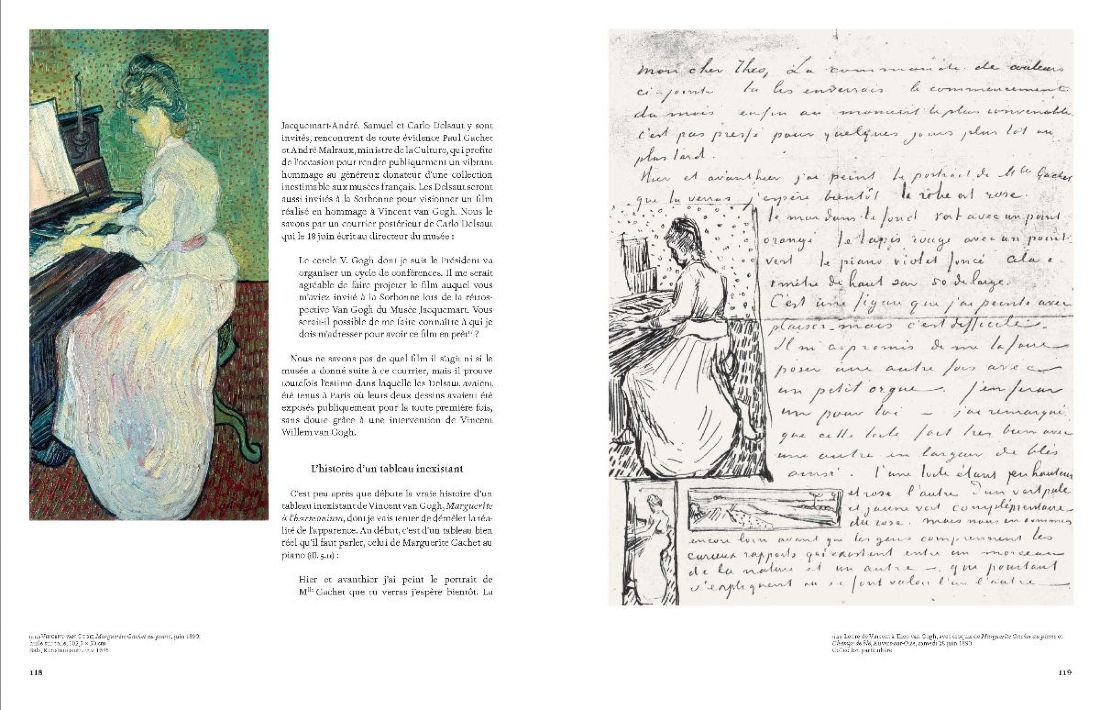 Jacquemart-André. Samuel et Carlo Delsaut y sont
invités, rencontrent de toute évidence Paul Gachet
et André Malraux, ministre de la Culture, qui profite
de l'occasion pour rendre publiquement un vibrant
hommage au généreux donateur d'une collection
inestimable aux musées français. Les Delsaut seront
aussi invités à la Sorbonne pour visionner un film
réalisé en hommage à Vincent van Gogh. Nous le
savons par un courrier postérieur de Carlo Delsaut
qui le 18 juin écrit au directeur du musée :
Le cercle V. Gogh dont je suis le Président va
organiser un cycle de conférences. Il me serait
agréable de faire projeter le film auquel vous
m'aviez invité à la Sorbonne lors de la rétros-
pective Van Gogh du Musée Jacquemart. Vous
serait-il possible de me faire connaître à qui je
dois m'adresser pour avoir ce film en prêt ?
Nous ne savons pas de quel film il s'agit ni si le
musée a donné suite à ce courrier, mais il prouve
toutefois l'estime dans laquelle les Delsaut avaient
été tenus à Paris où leurs deux dessins avaient été
exposés publiquement pour la toute première fois,
sans doute grâce à une intervention de Vincent
Willem van Gogh.
L'histoire d'un tableau inexistant
C'est peu après que débute la vraie histoire d'un
tableau inexistant de Vincent van Gogh, Marguerite
à l'harmonium, dont je vais tenter de démêler la réa-
lité de l'apparence. Au début, c'est d'un tableau bien
réel qu'il faut parler, celui de Marguerite Gachet au
piano (ill. 5.11) :
Hier et avanthier j'ai peint le portrait de
Mlle Gachet que tu verras j'espère bientôt. La
VINCENT VAN GOGH, Marguerite Gachet au piano, juin 1890,
huile sur toile, 102,5 × 50 cm
118
mon cher Theo, La commande de couleurs
ci-jointe tu les enverrais le commencement
du mois enfin au moment le plus convenable
c'est pas pressé pour quelques jours plus tôt ou
plus tard.
Hier et avanthier j'ai peint le portrait de Mlle Gachet
que tu verras j'espère bientôt la robe est rose
le mur dans le fond vert avec un point
orangé le tapis rouge avec un point
vert le piano violet foncé cela a
1 mètre de haut sur 50 de large.
C'est une figure que j'ai peinte avec
plaisir – mais c'est difficile.
Il m'a promis de me la faire
poser une autre fois avec
un petit orgue. j'en ferai
un pour toi – j'ai remarqué
que cette toile fait très bien avec
une autre en largeur de blés
ainsi. l'une toile étant en hauteur
et rose l'autre d'un vert pâle
et jaune vert complémentaire
du rose. mais nous en sommes
encore loin avant que les gens comprennent les
curieux rapports qui existent entre un morceau
de la nature et un autre – que pourtant
s'expliquent ou se font valoir l'un l'autre
Lettre de Vincent à Theo van Gogh, avec croquis de Marguerite Gachet au piano et
Champs de blé, Auvers-sur-Oise, samedi 28 juin 1890
Collection particulière
119